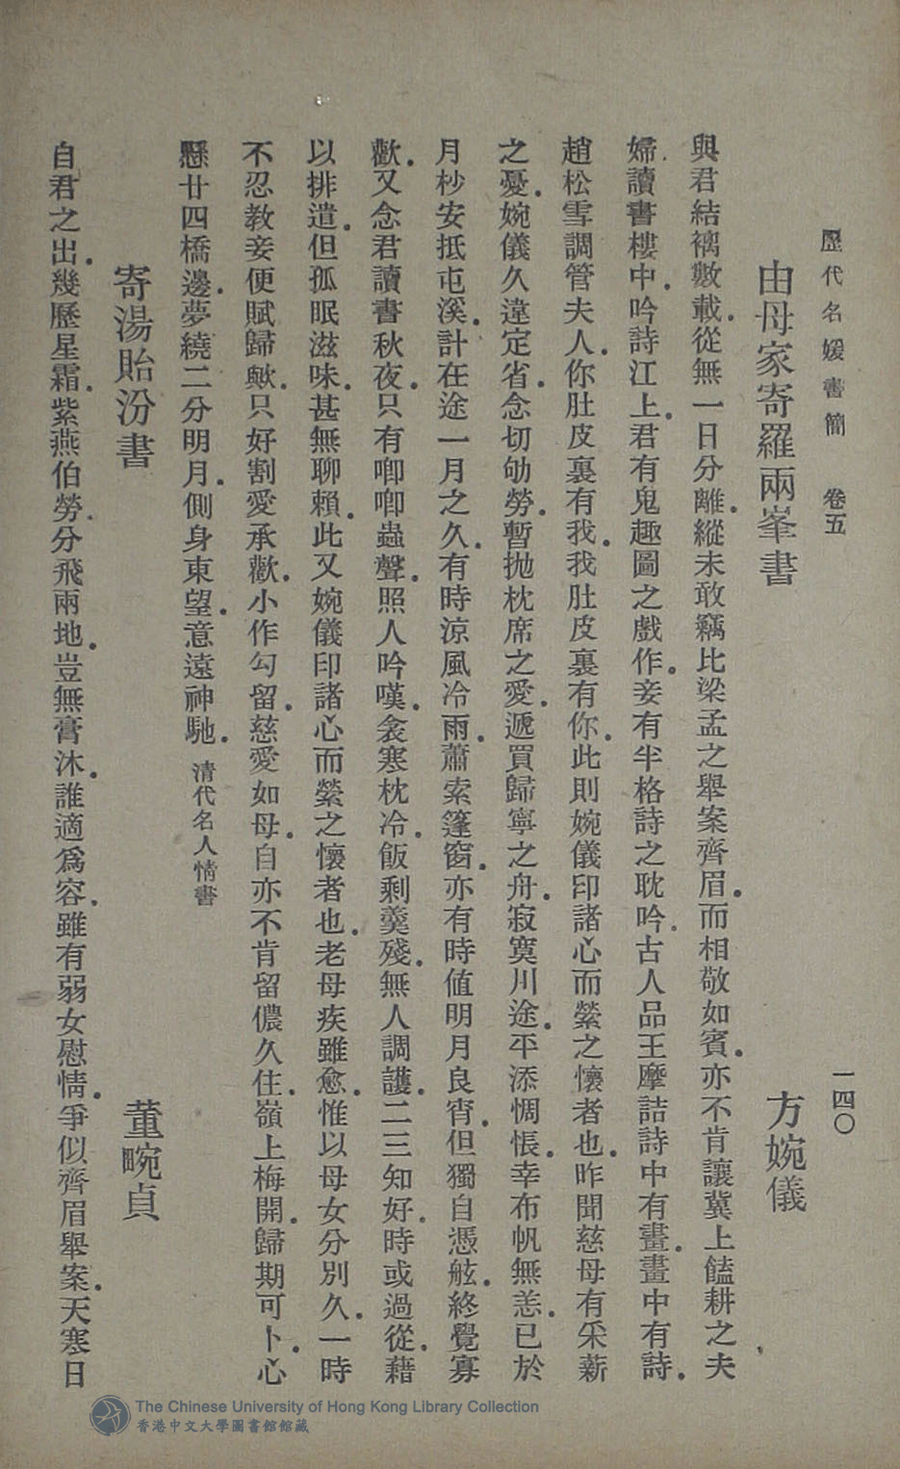 歷代名媛書簡　卷五　一四〇
由母家寄羅兩峯書　方婉儀
與君結褵數載．從無一日分離．縱未敢竊比梁孟之舉案齊眉．而相敬如賓．亦不肯讓冀上饁耕之夫
婦．讀書樓中．吟詩江上．君有鬼趣圖之戲作．妾有半格詩之耽吟．古人品王摩詰詩中有畫．畫中有詩．
趙松雪調管夫人．你肚皮裏有我．我肚皮裏有你．此則婉儀印諸心而縈之懷者也．昨聞慈母有采薪
之憂．婉儀久違定省．念切劬勞．暫拋枕席之愛．遞買歸寧之舟．寂寞川途．平添惆悵．幸布帆無恙．已於
月杪安抵屯溪．計在途一月之久．有時涼風冷雨．蕭索篷窗．亦有時值明月良宵．但獨自憑舷．終覺寡
歡．又念君讀書秋夜．只有喞喞蟲聲．照人吟嘆．衾寒枕冷．飯剩羹殘．無人調護．二三知好．時或過從．藉
以排遣．但孤眠滋味．甚無聊賴．此又婉儀印諸心而縈之懷者也．老母疾雖愈．惟以母女分別久．一時
不忍教妾便賦歸歟．只好割愛承歡．小作勾留．慈愛如母．自亦不肯留儂久住．嶺上梅開．歸期可卜．心
懸廿四橋邊．夢繞二分明月．側身東望．意遠神馳．清代名人情書
寄湯貽汾書　董畹貞
自君之出．幾歷星霜．紫燕伯勞．分飛兩地．豈無膏沐．誰適爲容．雖有弱女慰情．爭似齊眉舉案．天寒日
The Chinese University of Hong Kong Library Collection
香港中文大學圖書館館藏